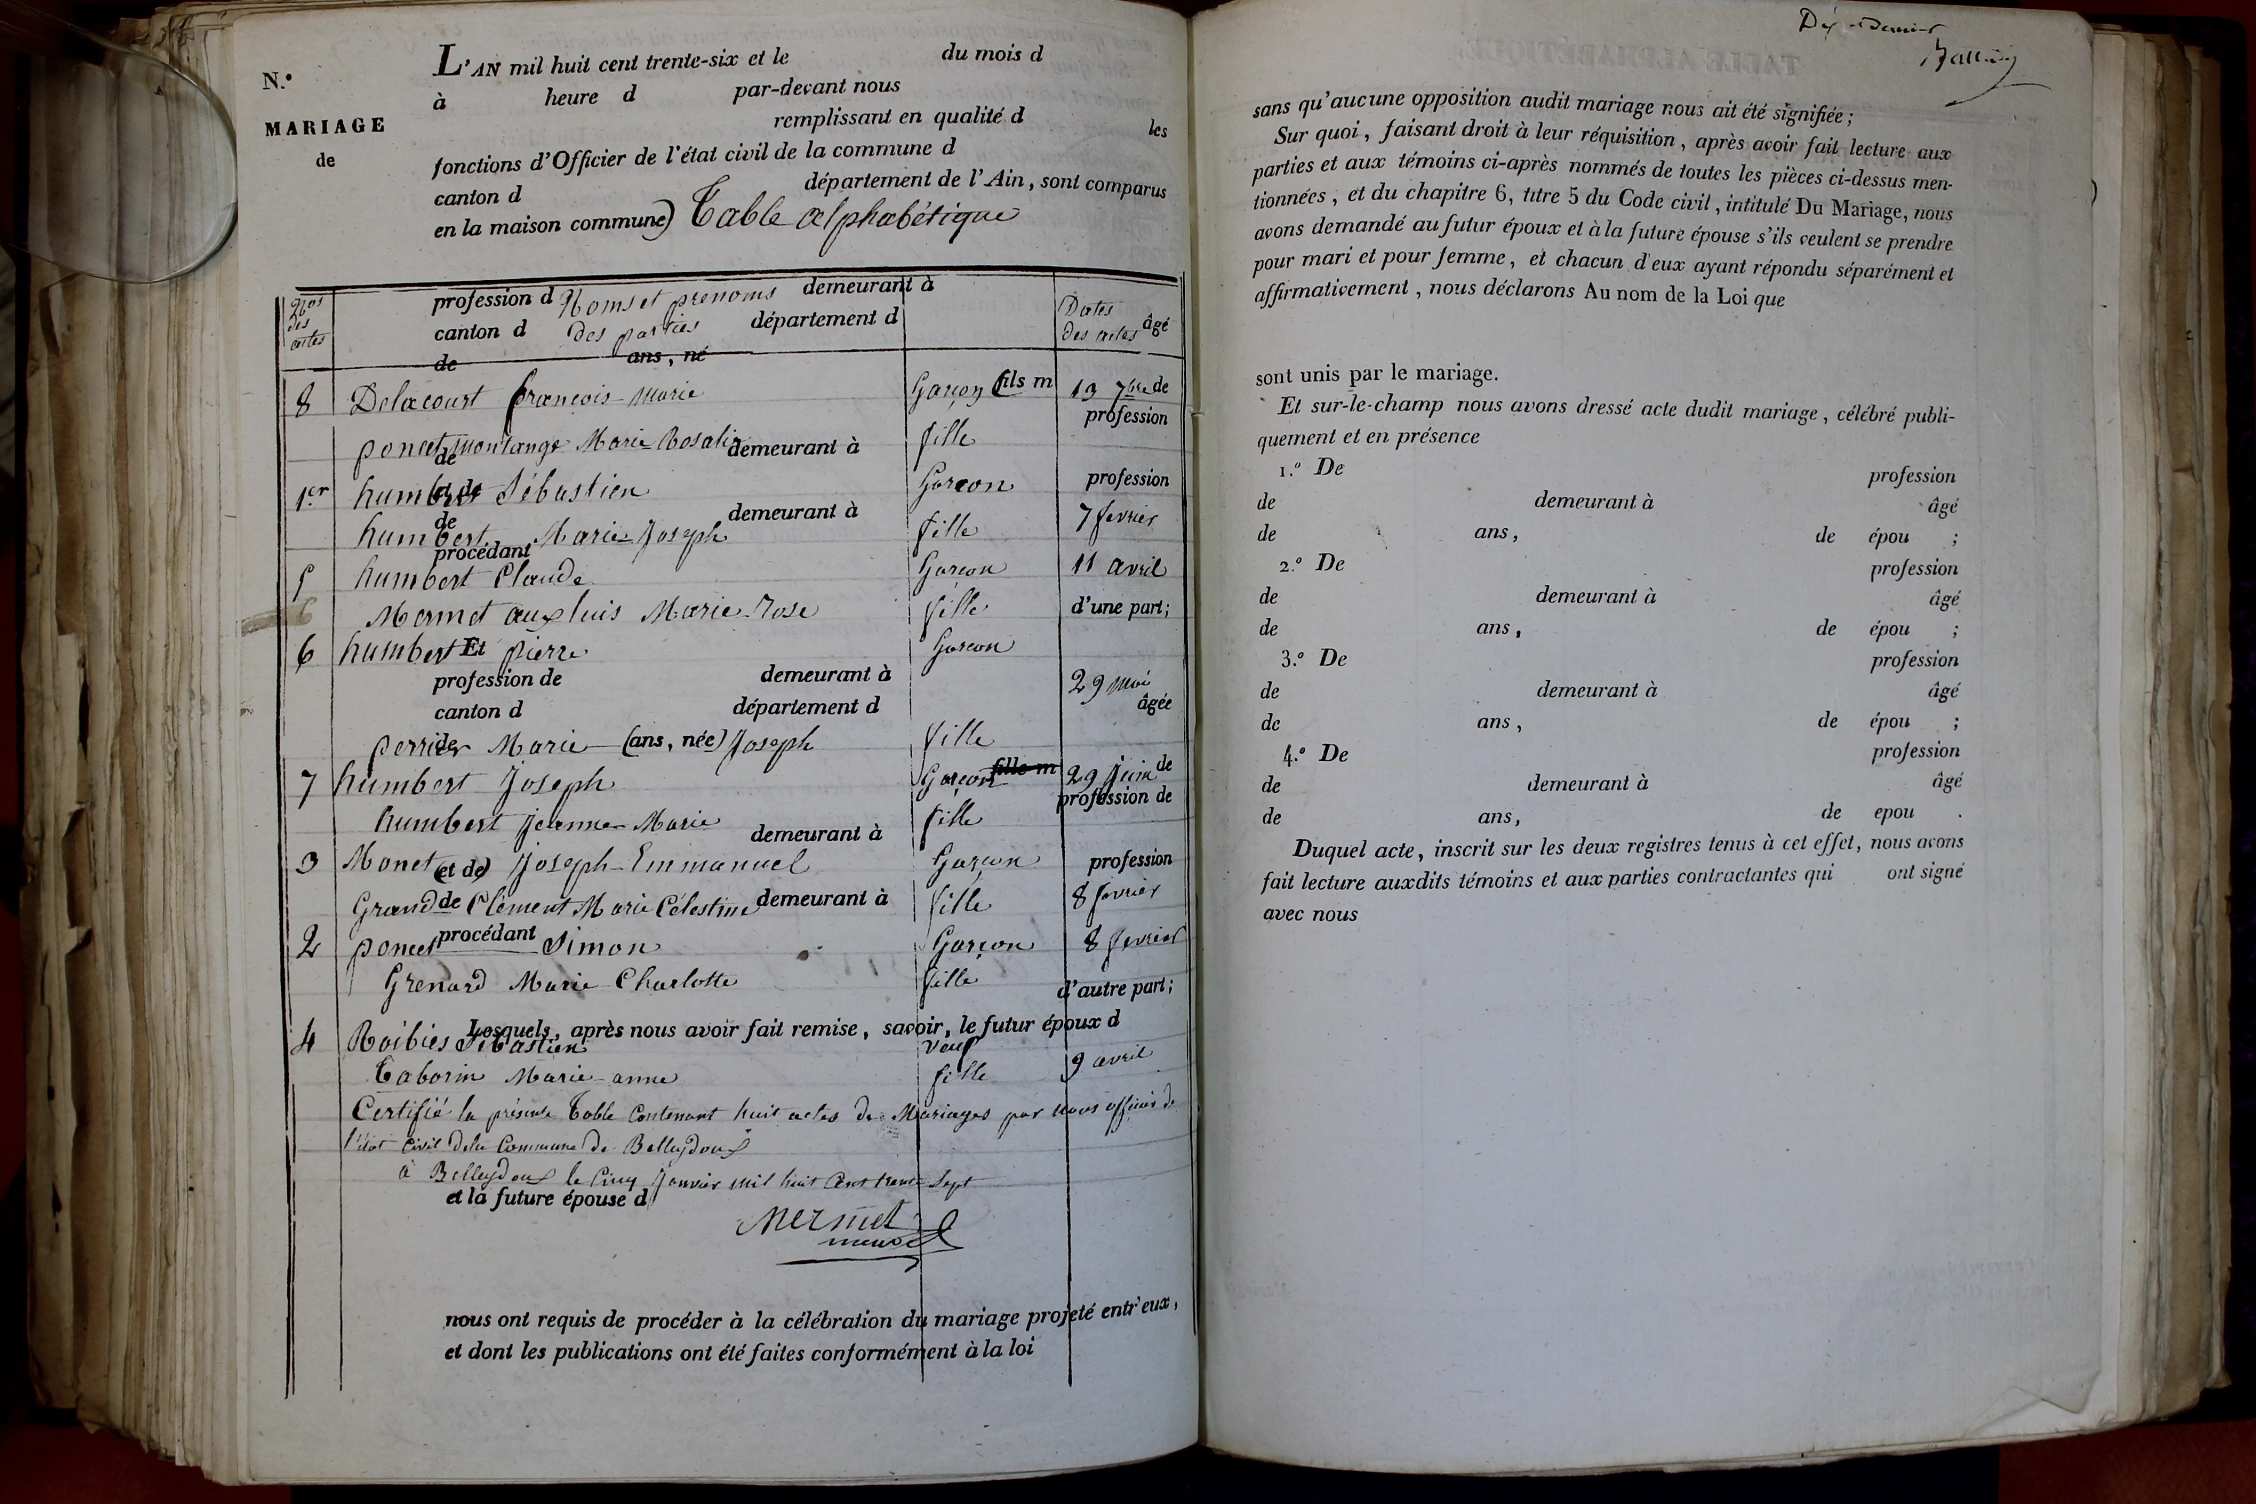 N.º
MARIAGE
de
L'AN mil huit cent trente-six et le du mois d
à heure d par-devant nous
remplissant en qualité d les
fonctions d'Officier de l'état civil de la commune d
canton d département de l'Ain, sont comparus
en la maison commune) Table alphabétique
Nos des actes
profession d Noms et prenoms demeurant à
canton d des parties département d
Dates des actes âgé
de ans, né
8 Delacourt francois-Marie Garçon fils m 13 7bre de
profession
poncet montange Marie Rosalie fille
de demeurant à
1er humbert Sébastien Garcon
et de profession
de demeurant à
humbert Marie-Joseph fille 7 fevrier
procédant
5 humbert Claude Garçon 11 avril
Mermet aux luis Marie-rose fille d'une part;
6 humbert pierre Garcon
Et
profession de demeurant à 29 mai
canton d département d âgée
perrier Marie-Joseph fille
de (ans, née)
7 humbert Joseph Garçon fille m 29 Juin de
profession de
humbert Jeanne-Marie fille
demeurant à
3 Monet Joseph-Emmanuel Garçon
(et de) profession
Grand Clément Marie Célestine fille 8 fevrier
de demeurant à
2 poncet Simon Garçon 8 fevrier
procédant
Grenard Marie-Charlotte fille
d'autre part;
Lesquels, après nous avoir fait remise, savoir, le futur époux d
4 Roibies Sébastien Veuf
Taborin Marie-anne fille 9 avril
Certifié la présente Table Contenant huit actes de Mariages par nous officier de
l'état Civil de la Commune de Belleydoux
à Belleydoux le Cinq Janvier mil huit Cent trente Sept
et la future épouse d
Mermet
nous ont requis de procéder à la célébration du mariage projeté entr'eux,
et dont les publications ont été faites conformément à la loi
sans qu'aucune opposition audit mariage nous ait été signifiée;
Sur quoi, faisant droit à leur réquisition, après avoir fait lecture aux
parties et aux témoins ci-après nommés de toutes les pièces ci-dessus men-
tionnées, et du chapitre 6, titre 5 du Code civil, intitulé Du Mariage, nous
avons demandé au futur époux et à la future épouse s'ils veulent se prendre
pour mari et pour femme, et chacun d'eux ayant répondu séparément et
affirmativement, nous déclarons Au nom de la Loi que
sont unis par le mariage.
Et sur-le-champ nous avons dressé acte dudit mariage, célébré publi-
quement et en présence
1.º De profession
de demeurant à âgé
de ans, de épou ;
2.º De profession
de demeurant à âgé
de ans, de épou ;
3.º De profession
de demeurant à âgé
de ans, de épou ;
4.º De profession
de demeurant à âgé
de ans, de epou .
Duquel acte, inscrit sur les deux registres tenus à cet effet, nous avons
fait lecture auxdits témoins et aux parties contractantes qui ont signé
avec nous